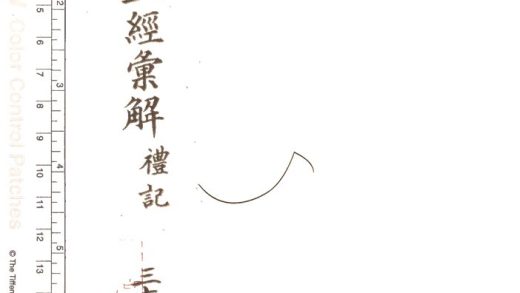 經彙解 禮記 三
Color Control Patches
5 6 7 8 9 10 11 12 13
2 3 4 5
© The Tiffen